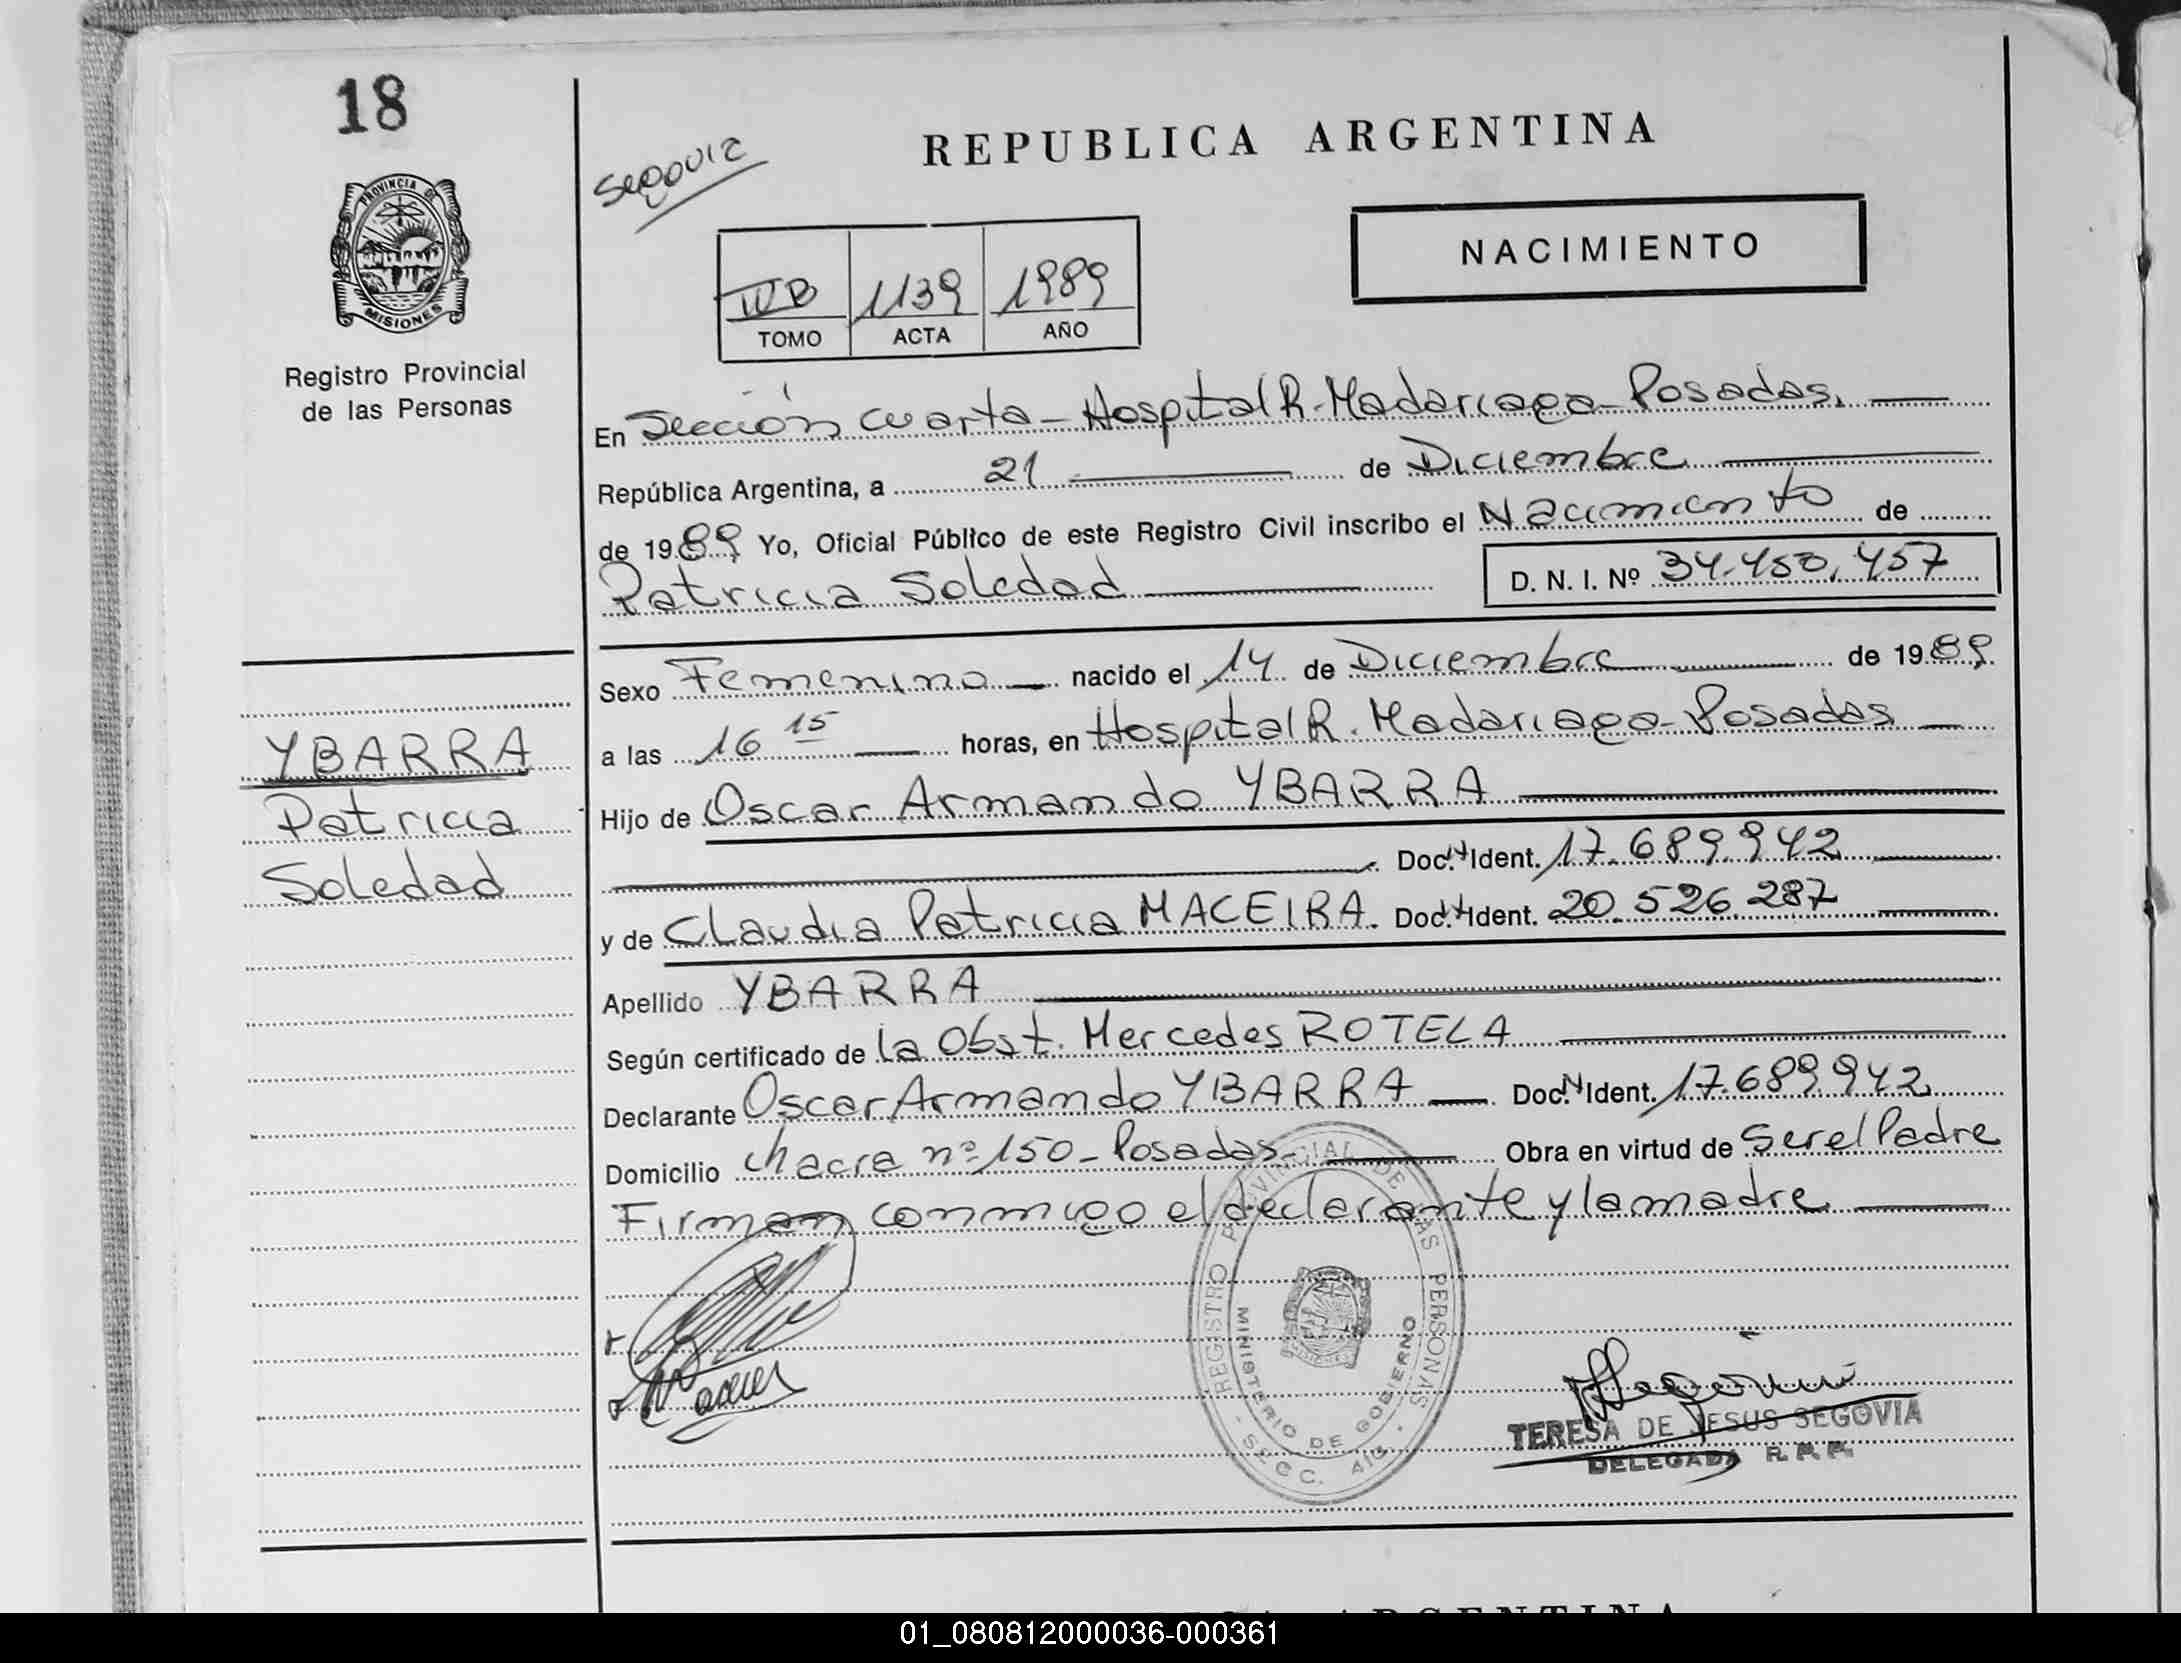 18
PROVINCIA DE
MISIONES
Registro Provincial
de las Personas
YBARRA
Patricia
Soledad
REPUBLICA ARGENTINA
NACIMIENTO
1139 1989
TOMO ACTA AÑO
En Sección cuarta - Hospital R. Madariaga - Posadas.
República Argentina, a 21 de Diciembre
de 1989 Yo, Oficial Público de este Registro Civil inscribo el Nacimiento de
Patricia Soledad D. N. I. Nº 34.450.457
Sexo Femenino nacido el 14 de Diciembre de 1989
a las 16 15 horas, en Hospital R. Madariaga - Posadas
Hijo de Oscar Armando YBARRA
Doc. N Ident. 17.689.942
y de Claudia Patricia MACEIRA. Doc. N Ident. 20.526.287
Apellido YBARRA
Según certificado de la Obst. Mercedes ROTELA
Declarante Oscar Armando YBARRA Doc. N Ident. 17.689.942
Domicilio Chacra nº 150 - Posadas - Obra en virtud de Ser el Padre
Firman conmigo el declarante y la madre
REGISTRO PROVINCIAL DE LAS PERSONAS
MINISTERIO DE GOBIERNO
SECC. 4ta
TERESA DE JESUS SEGOVIA
DELEGADA R. P. P.
01_080812000036-000361